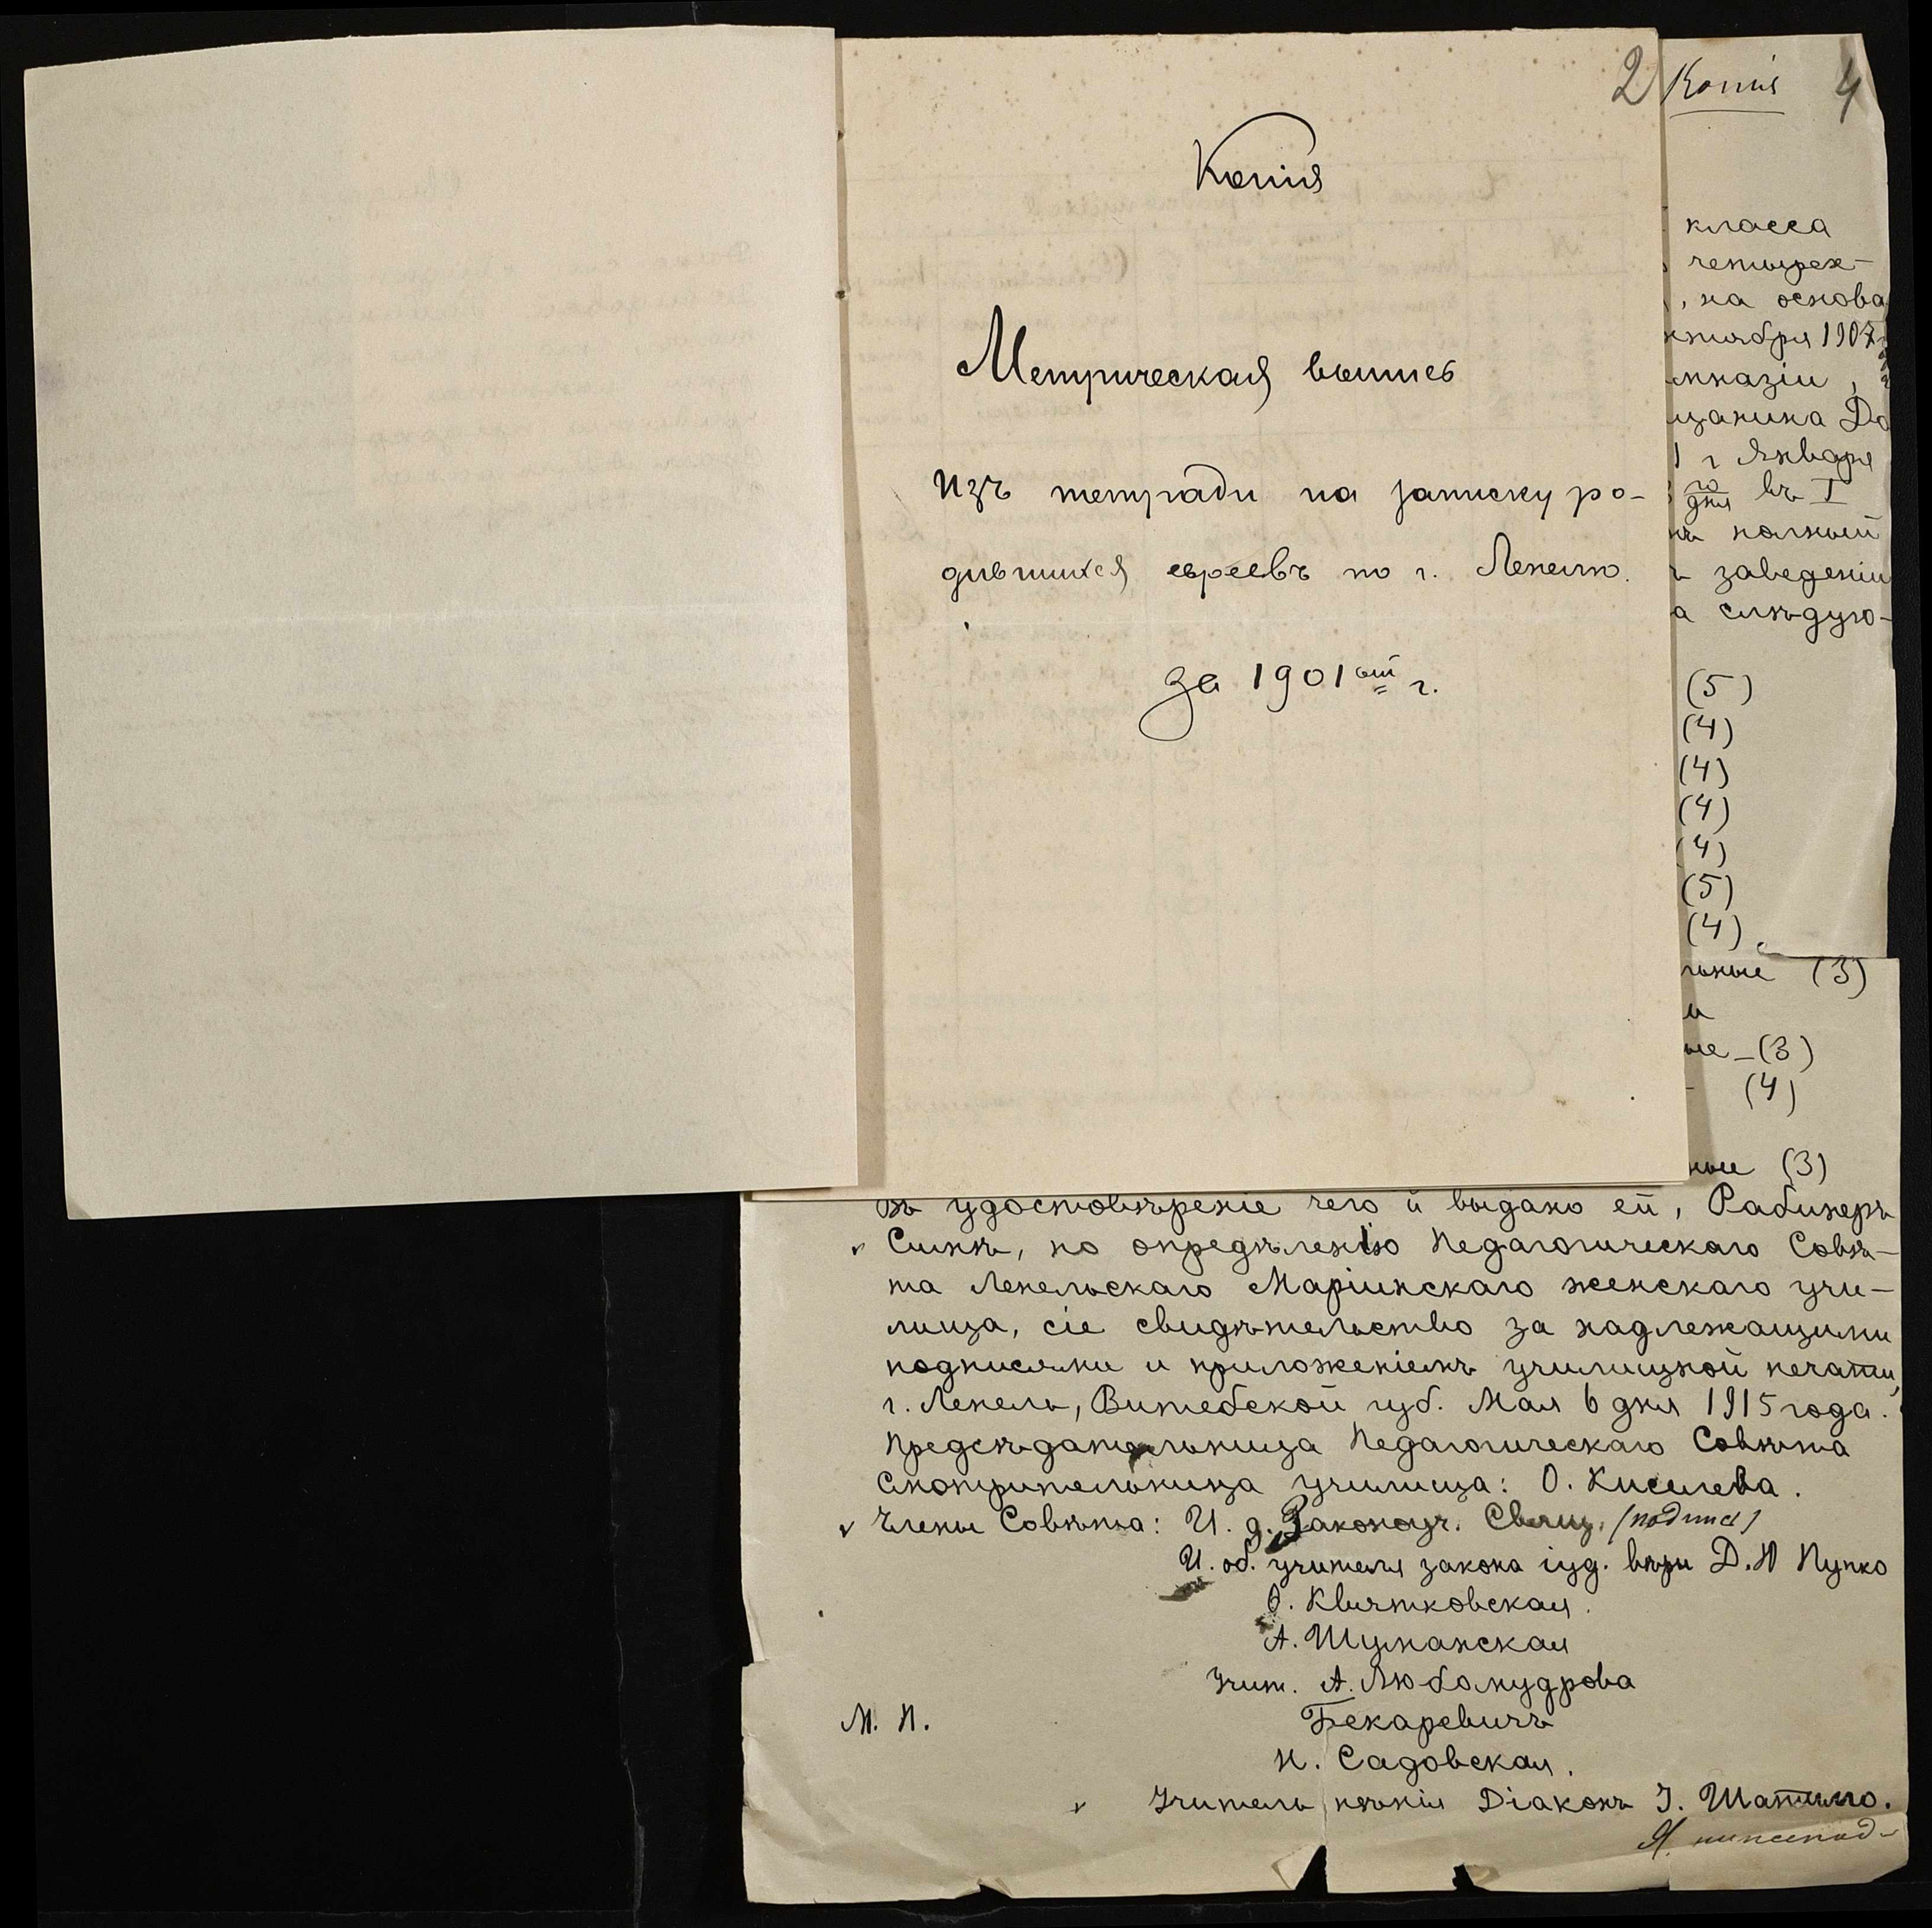 2
Копія
Метрическая выпись
Изъ тетради на записку ро-
дившихся евреевъ по г. Лепелю.
за 1901ый г.
Копія 4
класса
четырех-
, на основа
ктября 1907
мназіи,
щанина Да
1 г Января
го дня въ I
нъ полный
ъ заведеніи
а слѣдую-
(5)
(4)
(4)
(4)
(4)
(5)
(4)
льные (3)
и
ые - (3)
- (4)
ные (3)
Въ удостовѣреніе чего и выдано ей, Рабинеръ
Симѣ, по опредѣленію Педагогическаго Совѣ-
та Лепельскаго Маріинскаго женскаго учи-
лища, сіе свидѣтельство за надлежащими
подписями и приложеніемъ училищной печати,
г. Лепель, Витебской губ. Мая 6 дня 1915 года.
Предсѣдательница Педагогическаго Совѣта
Смотрительница училища: О. Киселева.
Члены Совѣта: И. д. Законоуч. Свящ. (подпись)
И. об. учителя закона іуд. вѣры Д. Ю Пупко
О. Квятковская.
А. Шуманская
Учит. А. Любомудрова
М. П. Бекаревичъ
Н. Садовская.
Учитель пѣнія Діаконъ І. Шатилло.
Я нижепод-